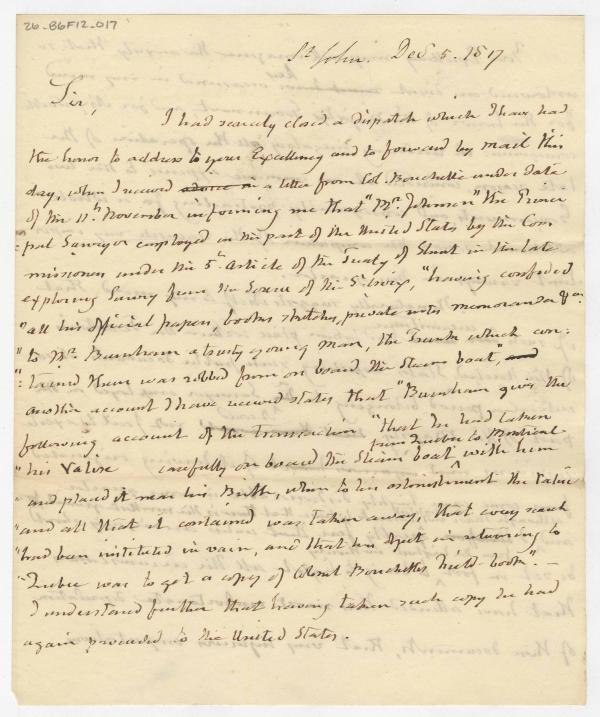 26-B6F12-017
St John. Dec 5. 1817
Sir,
I had scarcely closed a dispatch which I have had
the honor to address to your Excellency and to forward by mail this
day, when I received advice in a letter from Col. Bouchette under date
of the 11th November informing me that "Mr. Johnson" the Princi
=pal Surveyor employed on the part of the United States by the Com
missioners under the 5th Article of the Treaty of Ghent in the late
exploring Survey from the Source of the St Croix, "having confided
"all his official papers, books sketches, private notes memoranda &ca
"to Mr. Burnham a trusty young man, the Trunk which con:
":tained them was robbed from on board the Steam boat", and
another account I have received states that "Burnham gives the
following account of the transaction "that he had taken
from Quebec to Montreal
"his Valise carefully on board the Steam boat ^ with him
"and placed it near his Birth, when to his astonishment the Valise
"and all that it contained was taken away, that every search
"had been instituted in vain, and that his object in returning to
"Quebec was to get a copy of Colonel Bouchettes field-book". –
I understand further that having taken such copy he had
again proceeded to the United States.